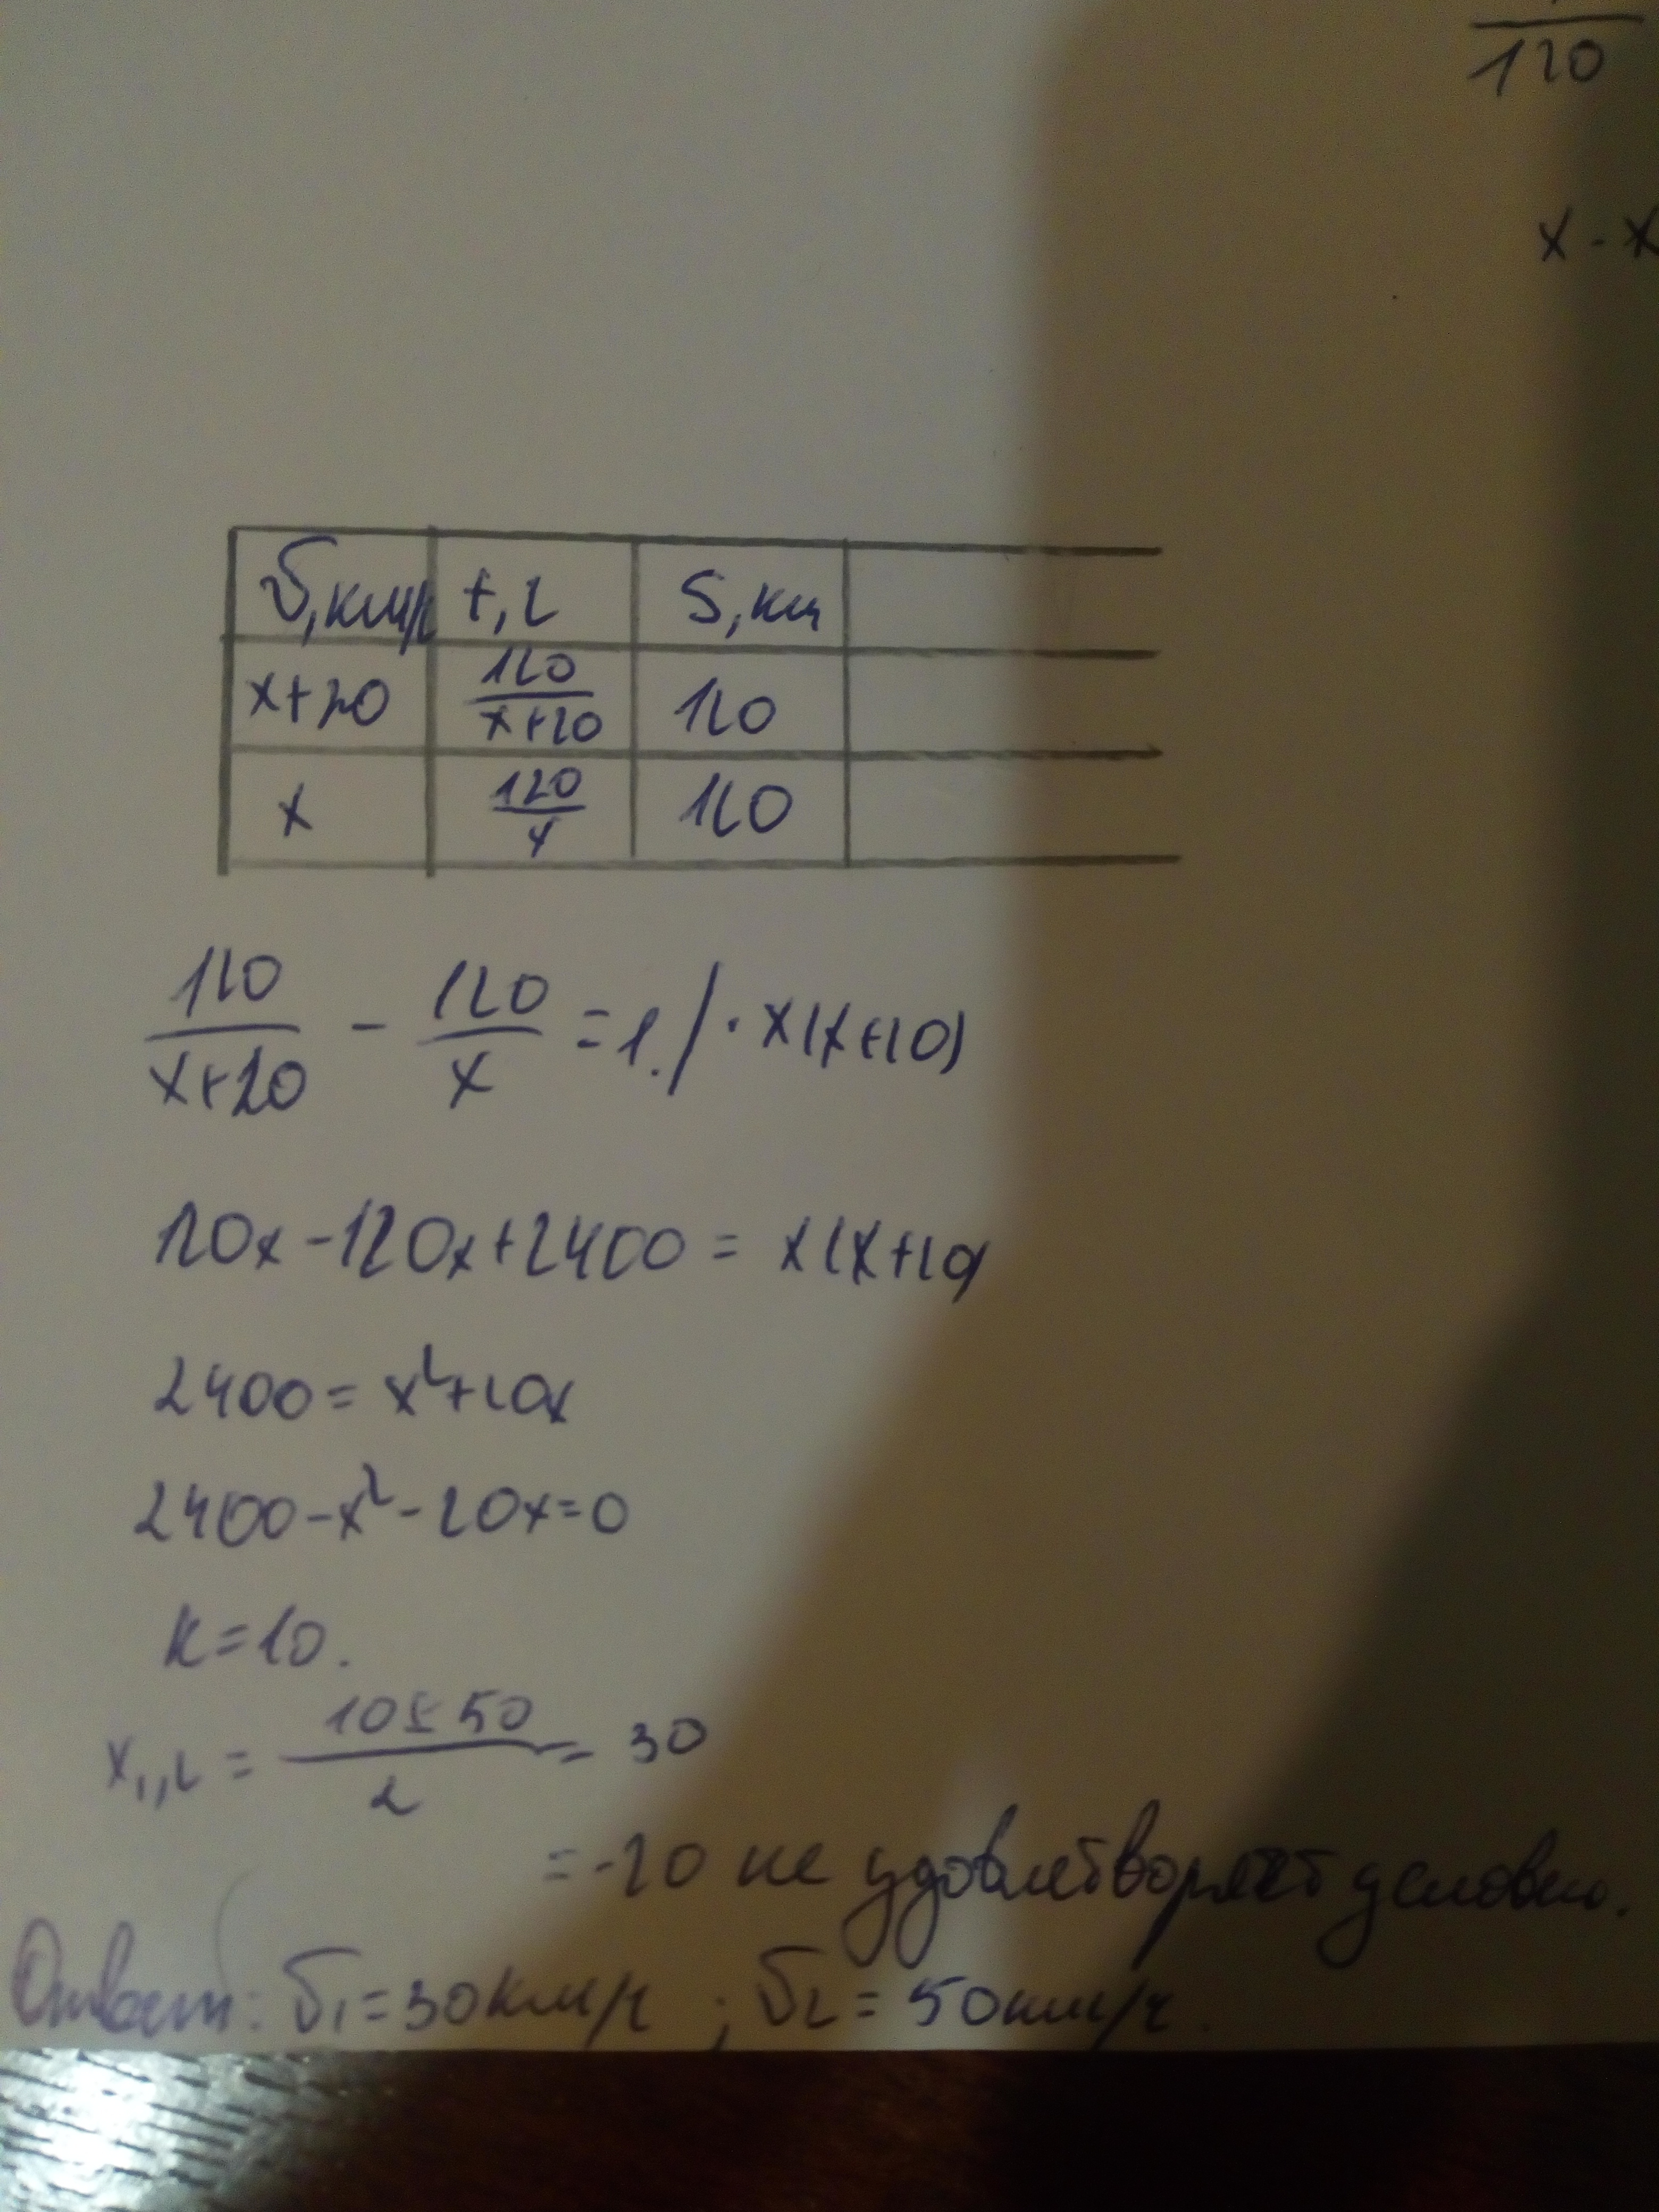 120
x - x
v, км/ч t, ч S, км
x+20 120/(x+20) 120
x 120/x 120
120/(x+20) - 120/x = 1. / · x(x+20)
120x - 120x + 2400 = x(x+20)
2400 = x² + 20x
2400 - x² - 20x = 0
k = 10.
x₁,₂ = (10 ± 50)/2 = 30
= -20 не удовлетворяет условию.
Ответ: v₁ = 30 км/ч ; v₂ = 50 км/ч.